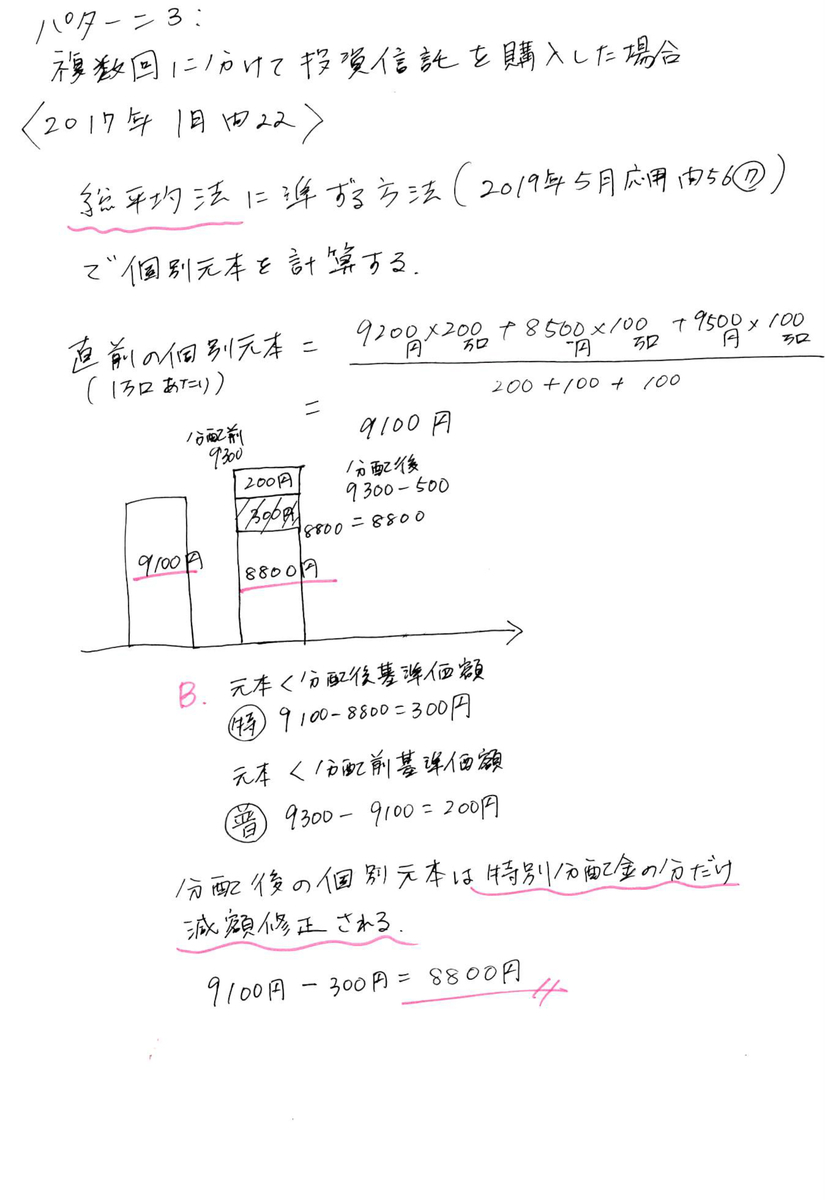 パターン3:
複数回に分けて投資信託を購入した場合
〈2017年1月問22〉
総平均法に準ずる方法(2019年5月応用問56⑦)
で個別元本を計算する.
直前の個別元本 = 9200円×200万口 + 8500円×100万口 + 9500円×100万口
(1万口あたり) 200 + 100 + 100
= 9100円
分配前
9300
200円
300円
9100円
8800円
8800
分配後
9300-500
= 8800
B. 元本<分配後基準価額
特 9100-8800=300円
元本<分配前基準価額
普 9300-9100=200円
分配後の個別元本は特別分配金の分だけ
減額修正される.
9100円-300円=8800円